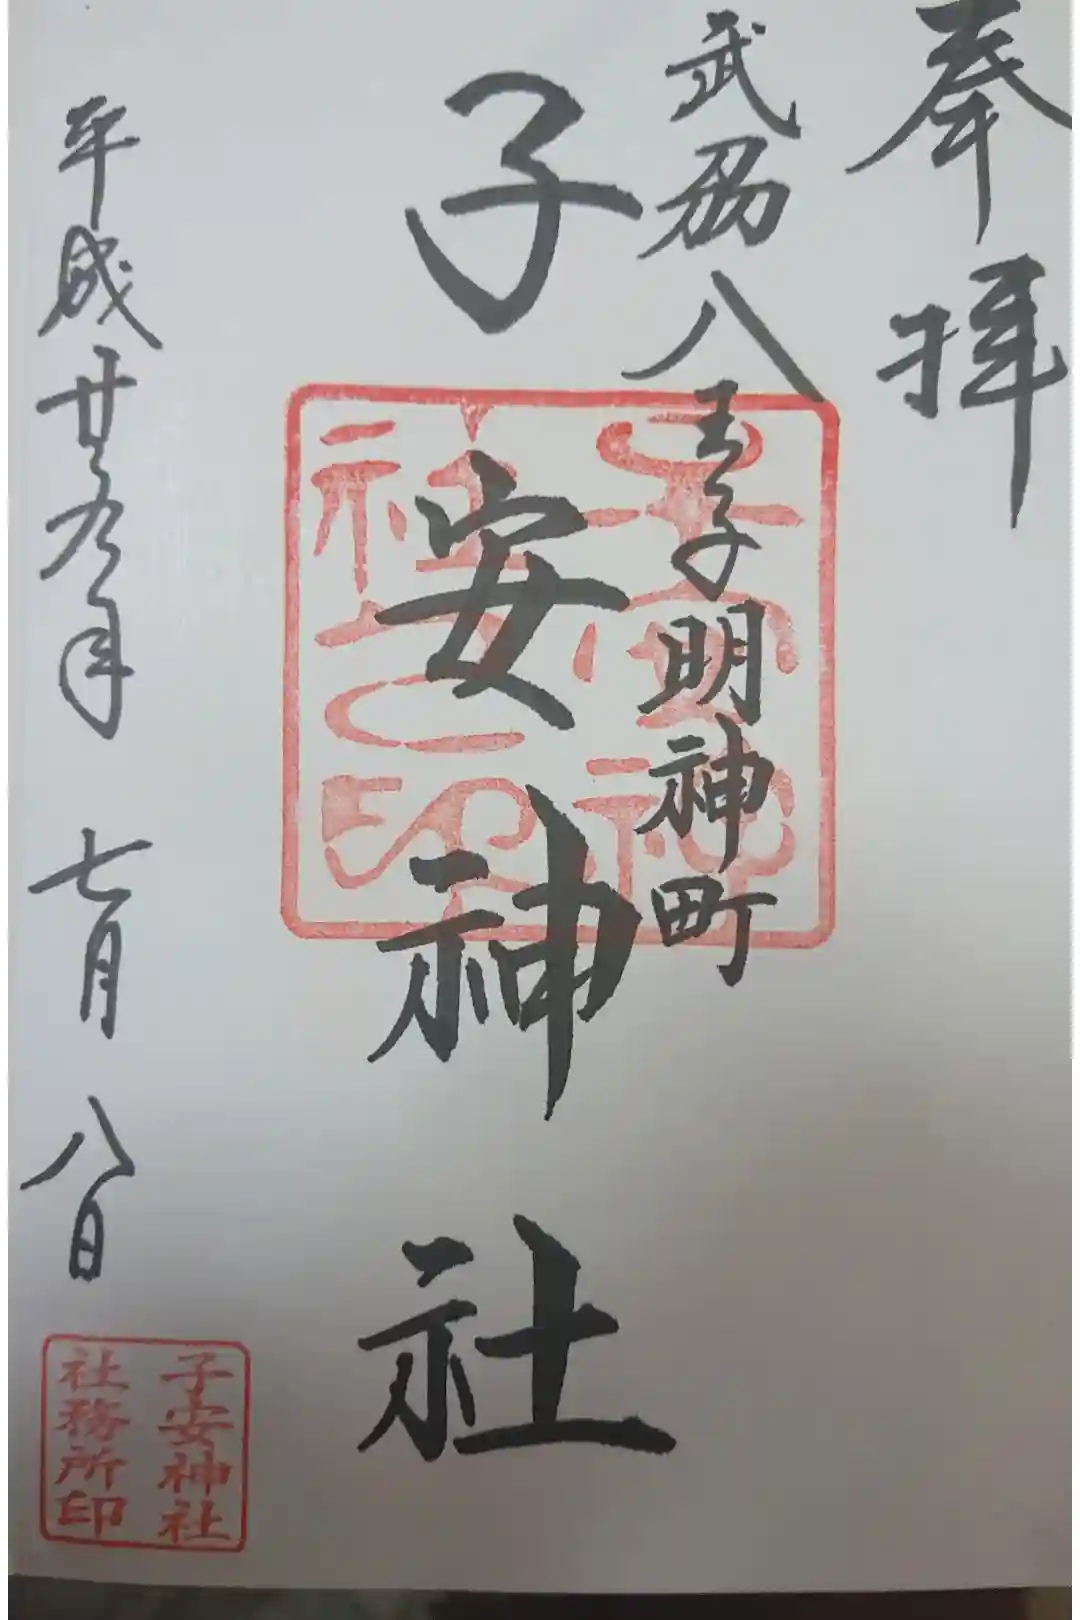 奉拝
武刕八王子明神町
子安神社
平成廿九年 七月 八日
子安神社
社之印
子安神社
社務所印